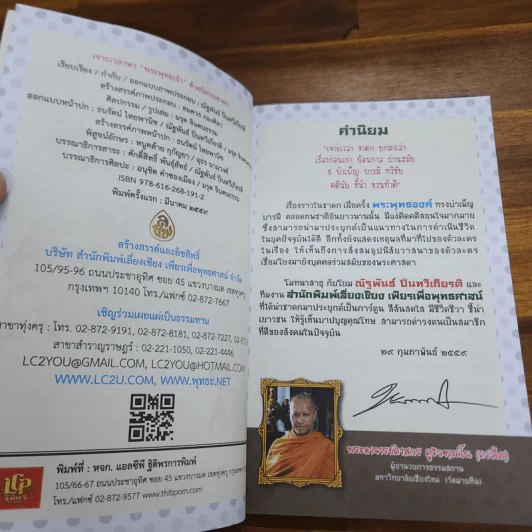 เจาะเวลาหา "พระพุทธเจ้า" ด้วยนิทานชาดก
เรียบเรียง / กำกับ / ออกแบบภาพประกอบ : ณัฐพันธ์ ปิ่นทวีเกียรติ
สร้างสรรค์ภาพประกอบ :
ศิลปกรรม / รูปเล่ม : มรุต จินตนธรรม
ออกแบบหน้าปก : ธนรัตน์ ไทยพานิช / ณัฐพันธ์ ปิ่นทวีเกียรติ / มรุต จินตนธรรม
สร้างสรรค์ภาพหน้าปก : ธนรัตน์ ไทยพานิช
พิสูจน์อักษร :
บรรณาธิการสาระ : ศักดิ์สิทธิ์ พันธุ์สัตย์ / ณัฐพันธ์ ปิ่นทวีเกียรติ
บรรณาธิการศิลปะ : อนุชิต คำซองเมือง / มรุต จินตนธรรม
ISBN 978-616-268-191-2
พิมพ์ครั้งแรก : มีนาคม ๒๕๕๙
สร้างสรรค์และลิขสิทธิ์
บริษัท สำนักพิมพ์เลี่ยงเชียง เพียรเพื่อพุทธศาสน์ จำกัด
105/95-96 ถนนประชาอุทิศ ซอย 45 แขวงบางมด เขตทุ่งครุ
กรุงเทพฯ 10140 โทร./แฟกซ์ 02-872-7667
เชิญร่วมเผยแผ่เป็นธรรมทาน
สาขาทุ่งครุ : โทร. 02-872-9191, 02-872-8181, 02-872-7227,
สาขาสำราญราษฎร์ : 02-221-1050, 02-221-4446
LC2YOU@GMAIL.COM, LC2YOU@HOTMAIL.COM
WWW.LC2U.COM, WWW.พุทธะ.NET
LCP
พิมพ์ที่ : หจก. แอลซีพี ฐิติพรการพิมพ์
105/66-67 ถนนประชาอุทิศ ซอย 45 แขวงบางมด เขตทุ่งครุ
โทร./แฟกซ์ 02-872-9577 www.thitiporn.com
คำนิยม
"เจาะเวลา ชาดก ยกมาเล่า
เรื่องก่อนเก่า ย้อนกาล ผ่านสมัย
ธ บำเพ็ญ บารมี ทวีชัย
คตินัย ชี้นำ ชวนทำดี"
เรื่องราวในชาดก เมื่อครั้ง พระพุทธองค์ ทรงบำเพ็ญ
บารมี ตลอดภพชาติอันยาวนานนั้น มีแง่คิดคติสอนใจมากมาย
ซึ่งสามารถนำมาประยุกต์เป็นแนวทางในการดำเนินชีวิต
ในยุคปัจจุบันได้ดี อีกทั้งยังแสดงเหตุผลที่มาที่ไปของตัวละคร
เชื่อมโยงมายังบุคคลร่วมสมัยของพระศาสดา
โมทนาสาธุ กับโยม ณัฐพันธ์ ปิ่นทวีเกียรติ และ
ทีมงาน สำนักพิมพ์เลี่ยงเชียง เพียรเพื่อพุทธศาสน์
ที่ได้นำชาดกมาประยุกต์เป็นการ์ตูน สีสันสดใส มีชีวิตชีวา ชี้นำ
เยาวชน ให้รู้เห็นบาปบุญคุณโทษ สามารถดำรงตนเป็นสมาชิก
ที่ดีของสังคมในปัจจุบัน
๒๙ กุมภาพันธ์ ๒๕๕๙
ผู้อำนวยการธรรมสถาน
มหาวิทยาลัยเชียงใหม่ (วัดฝายหิน)